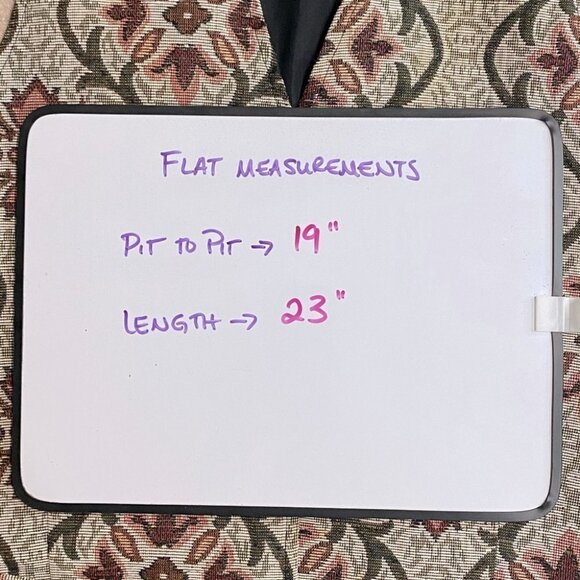 FLAT MEASUREMENTS
PIT TO PIT → 19"
LENGTH → 23"